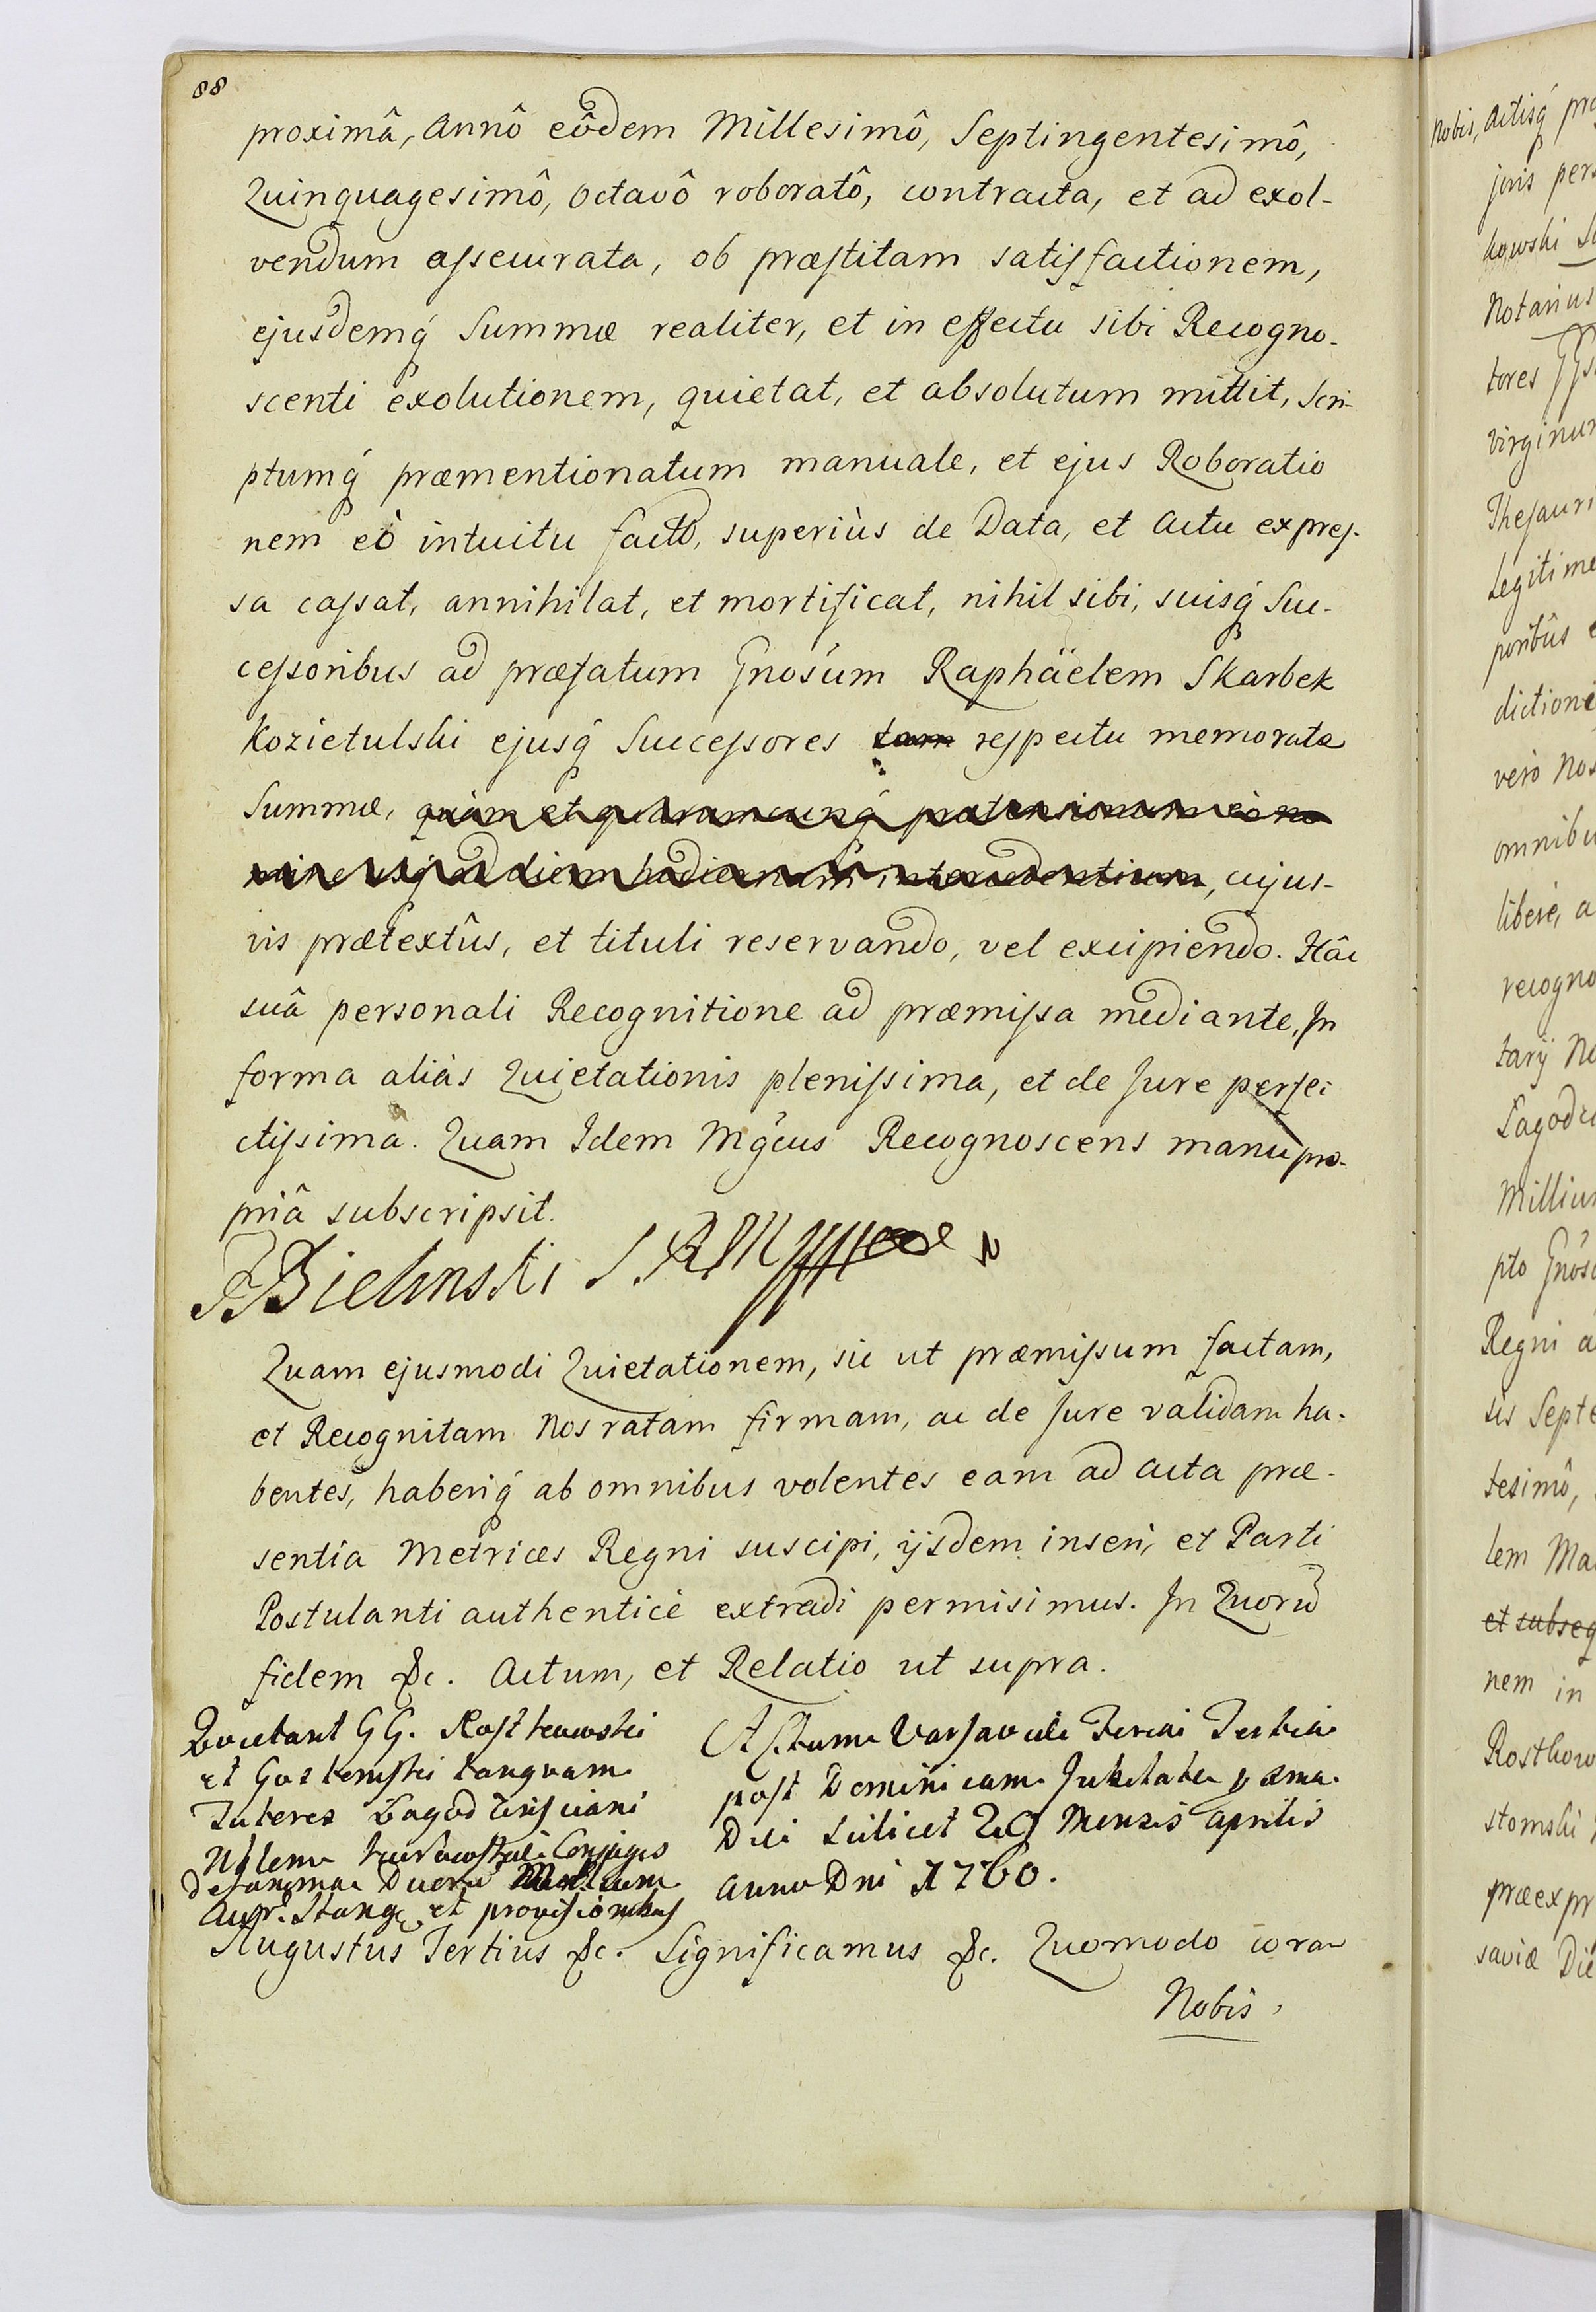 88
proximâ, Annô eôdem Millesimô, Septingentesimô,
Quinquagesimô, octavô roboratô, contracta, et ad exol-
vendum assecurata, ob præstitam satisfactionem,
ejusdemq́ Summæ realiter, et in effectu sibi Recogno-
scenti exolutionem, quietat, et absolutum mittit, Scri-
ptumq́ præmentionatum manuale, et ejus Roboratio
nem eô intuitu factô, superiùs de Data, et Actu expres-
sa cassat, annihilat, et mortificat, nihil sibi, suisq́ Suc-
cessoribus ad præfatum Gnosúm Raphäelem Skarbek
Kozietulski ejusq́ Successores tam respectu memoratæ
Summæ, quàm et quarumcunq́ prætensionum eo no
mine usq́ ad diem hodiernam intercedentium, cujus-
vis prætextûs, et tituli reservando, vel excipiendo. Hâc
suâ personali Recognitione ad præmissa mediante, In
forma aliàs Quietationis plenissima, et de Jure perfe-
ctissima. Quam Idem Mǵcus Recognoscens manu pro-
priâ subscripsit.
F Bielinski
Quam ejusmodi Quietationem, sic ut præmissum factam,
et Recognitam Nos ratam firmam, ac de Jure validam ha-
bentes, haberiq́ ab omnibus volentes eam ad Acta præ-
sentia Metrices Regni suscipi, ijsdem inseri, et Parti
Postulanti authenticè extradi permisimus. In Quorū
fidem &c. Actum, et Relatio ut supra.
Quietant GG. Rostkowski
et Gostomski tanquam
Tutores
Conjuges
de summa Duorū Millium
et provisionibus
Actum Varsaviæ Feria Tertia
post Dominicam Jubilate proxima
Die scilicet 29 Mensis Aprilis
Anno Dni 1760.
Augustus Tertius &c. Significamus &c. Quomodo coram
Nobis,
Nobis, Actisq́
juris
kowski
Notarius
tores
virginum
Thesauri
Legitime
dictioni
vero
libere, a
recogno
Millium
pto
Regni a
sis Septe
tesimô,
lem Ma
et subseq
nem in
Rostkow
stomski
præexpr
saviæ Die